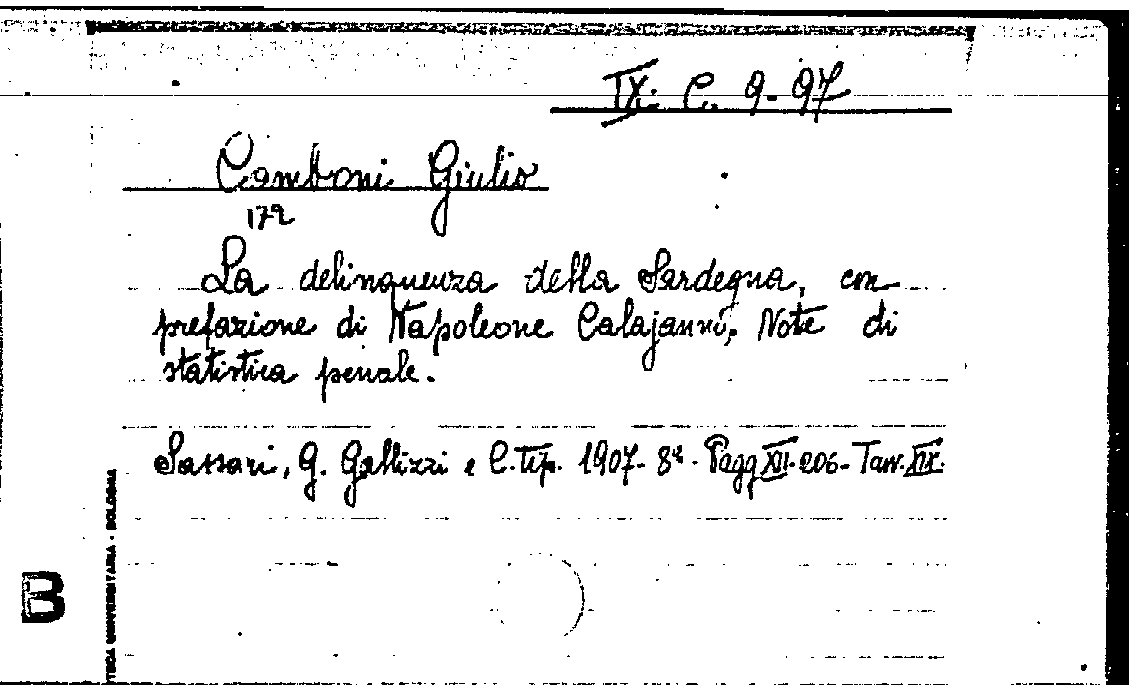 IX. C. 9-97
Camboni Giulio
179
La delinquenza della Sardegna, con
prefazione di Napoleone Calajanni, Note di
statistica penale.
Sassari, G. Gallizzi e C. Tip. 1907- 8º. Pagg XII-206- Tavv. XIX.
B
TECA UNIVERSITARIA - BOLOGNA